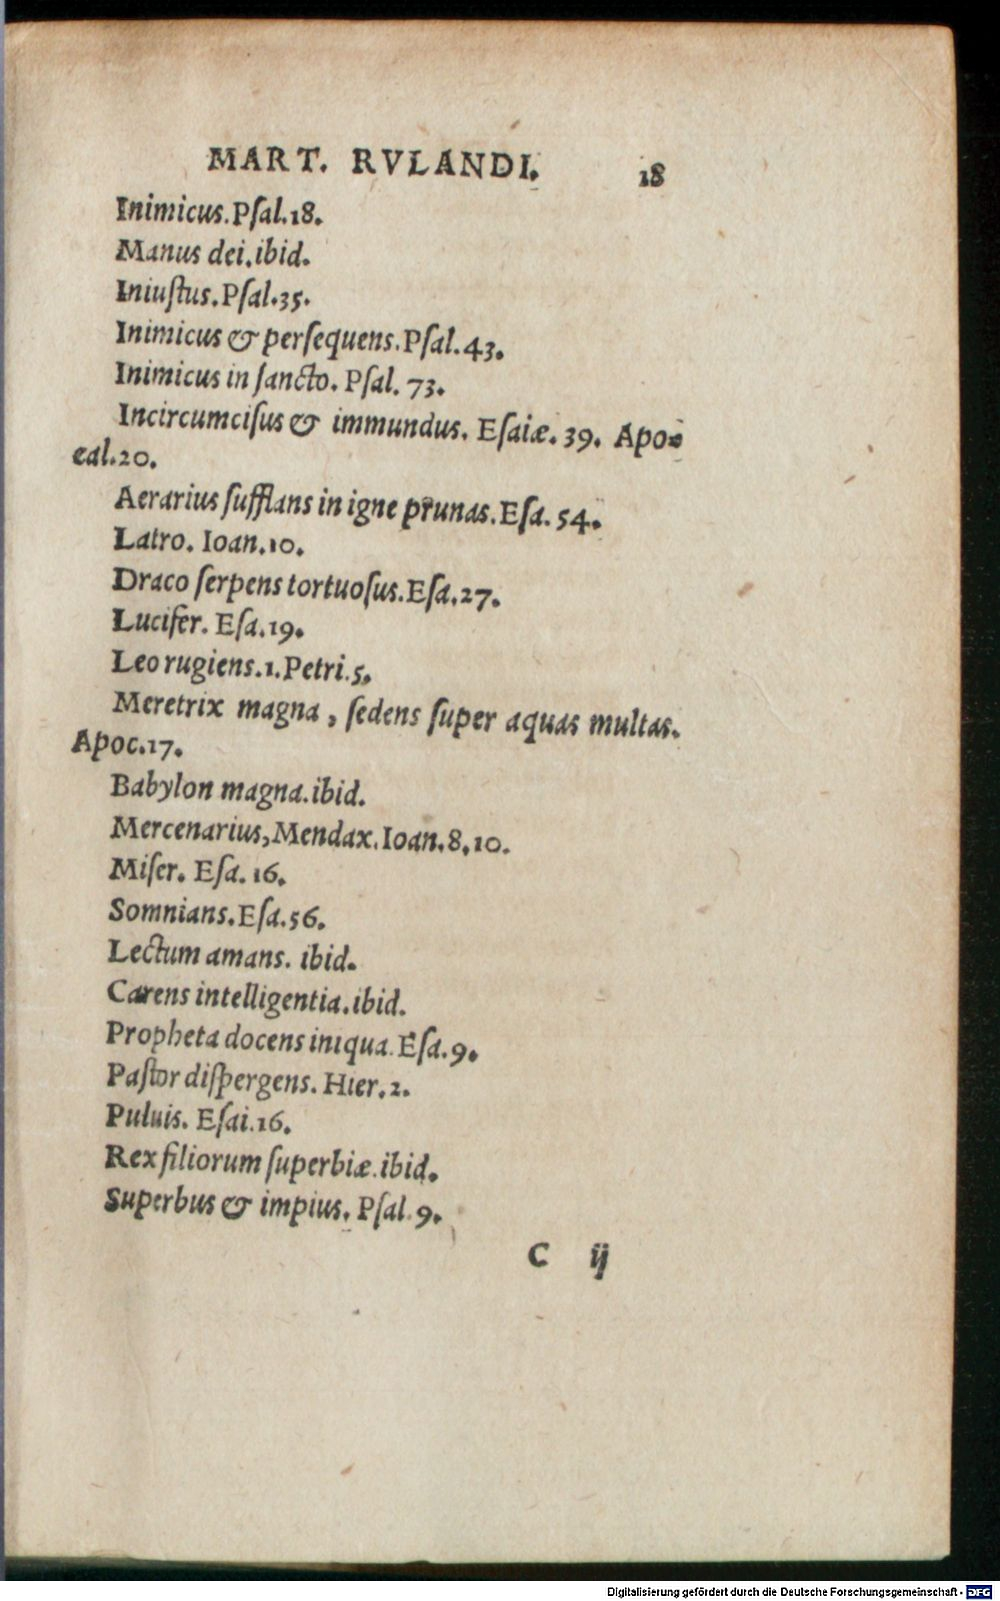 MART. RVLANDI. 18
Inimicus. Pſal. 18.
Manus dei. ibid.
Iniuſtus. Pſal. 35.
Inimicus & perſequens. Pſal. 43.
Inimicus in ſancto. Pſal. 73.
Incircumciſus & immundus. Eſaiæ. 39. Apo=
cal. 20.
Aerarius ſufflans in igne prunas. Eſa. 54.
Latro. Ioan. 10.
Draco ſerpens tortuoſus. Eſa. 27.
Lucifer. Eſa. 19.
Leo rugiens. 1. Petri. 5.
Meretrix magna, ſedens ſuper aquas multas.
Apoc. 17.
Babylon magna. ibid.
Mercenarius, Mendax. Ioan. 8. 10.
Miſer. Eſa. 16.
Somnians. Eſa. 56.
Lectum amans. ibid.
Carens intelligentia. ibid.
Propheta docens iniqua. Eſa. 9.
Paſtor diſpergens. Hier. 2.
Puluis. Eſai. 16.
Rex filiorum ſuperbiæ. ibid.
Superbus & impius. Pſal. 9.
C ij
Digitalisierung gefördert durch die Deutsche Forschungsgemeinschaft - DFG